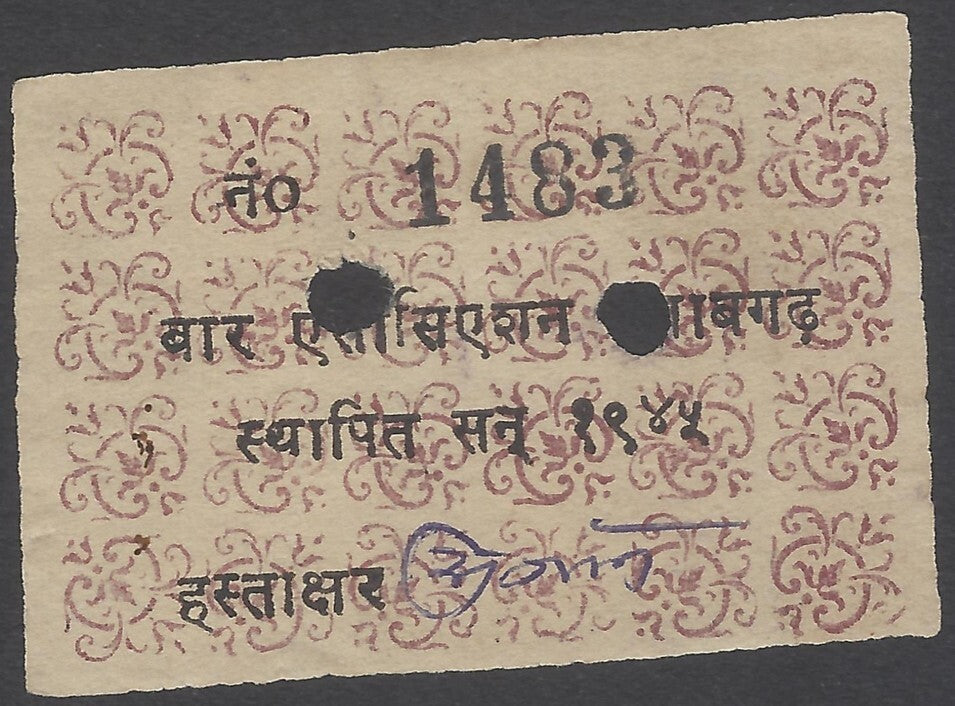 नं० 1483
बार एसोसिएशन
स्थापित सन् १९४५
हस्ताक्षर